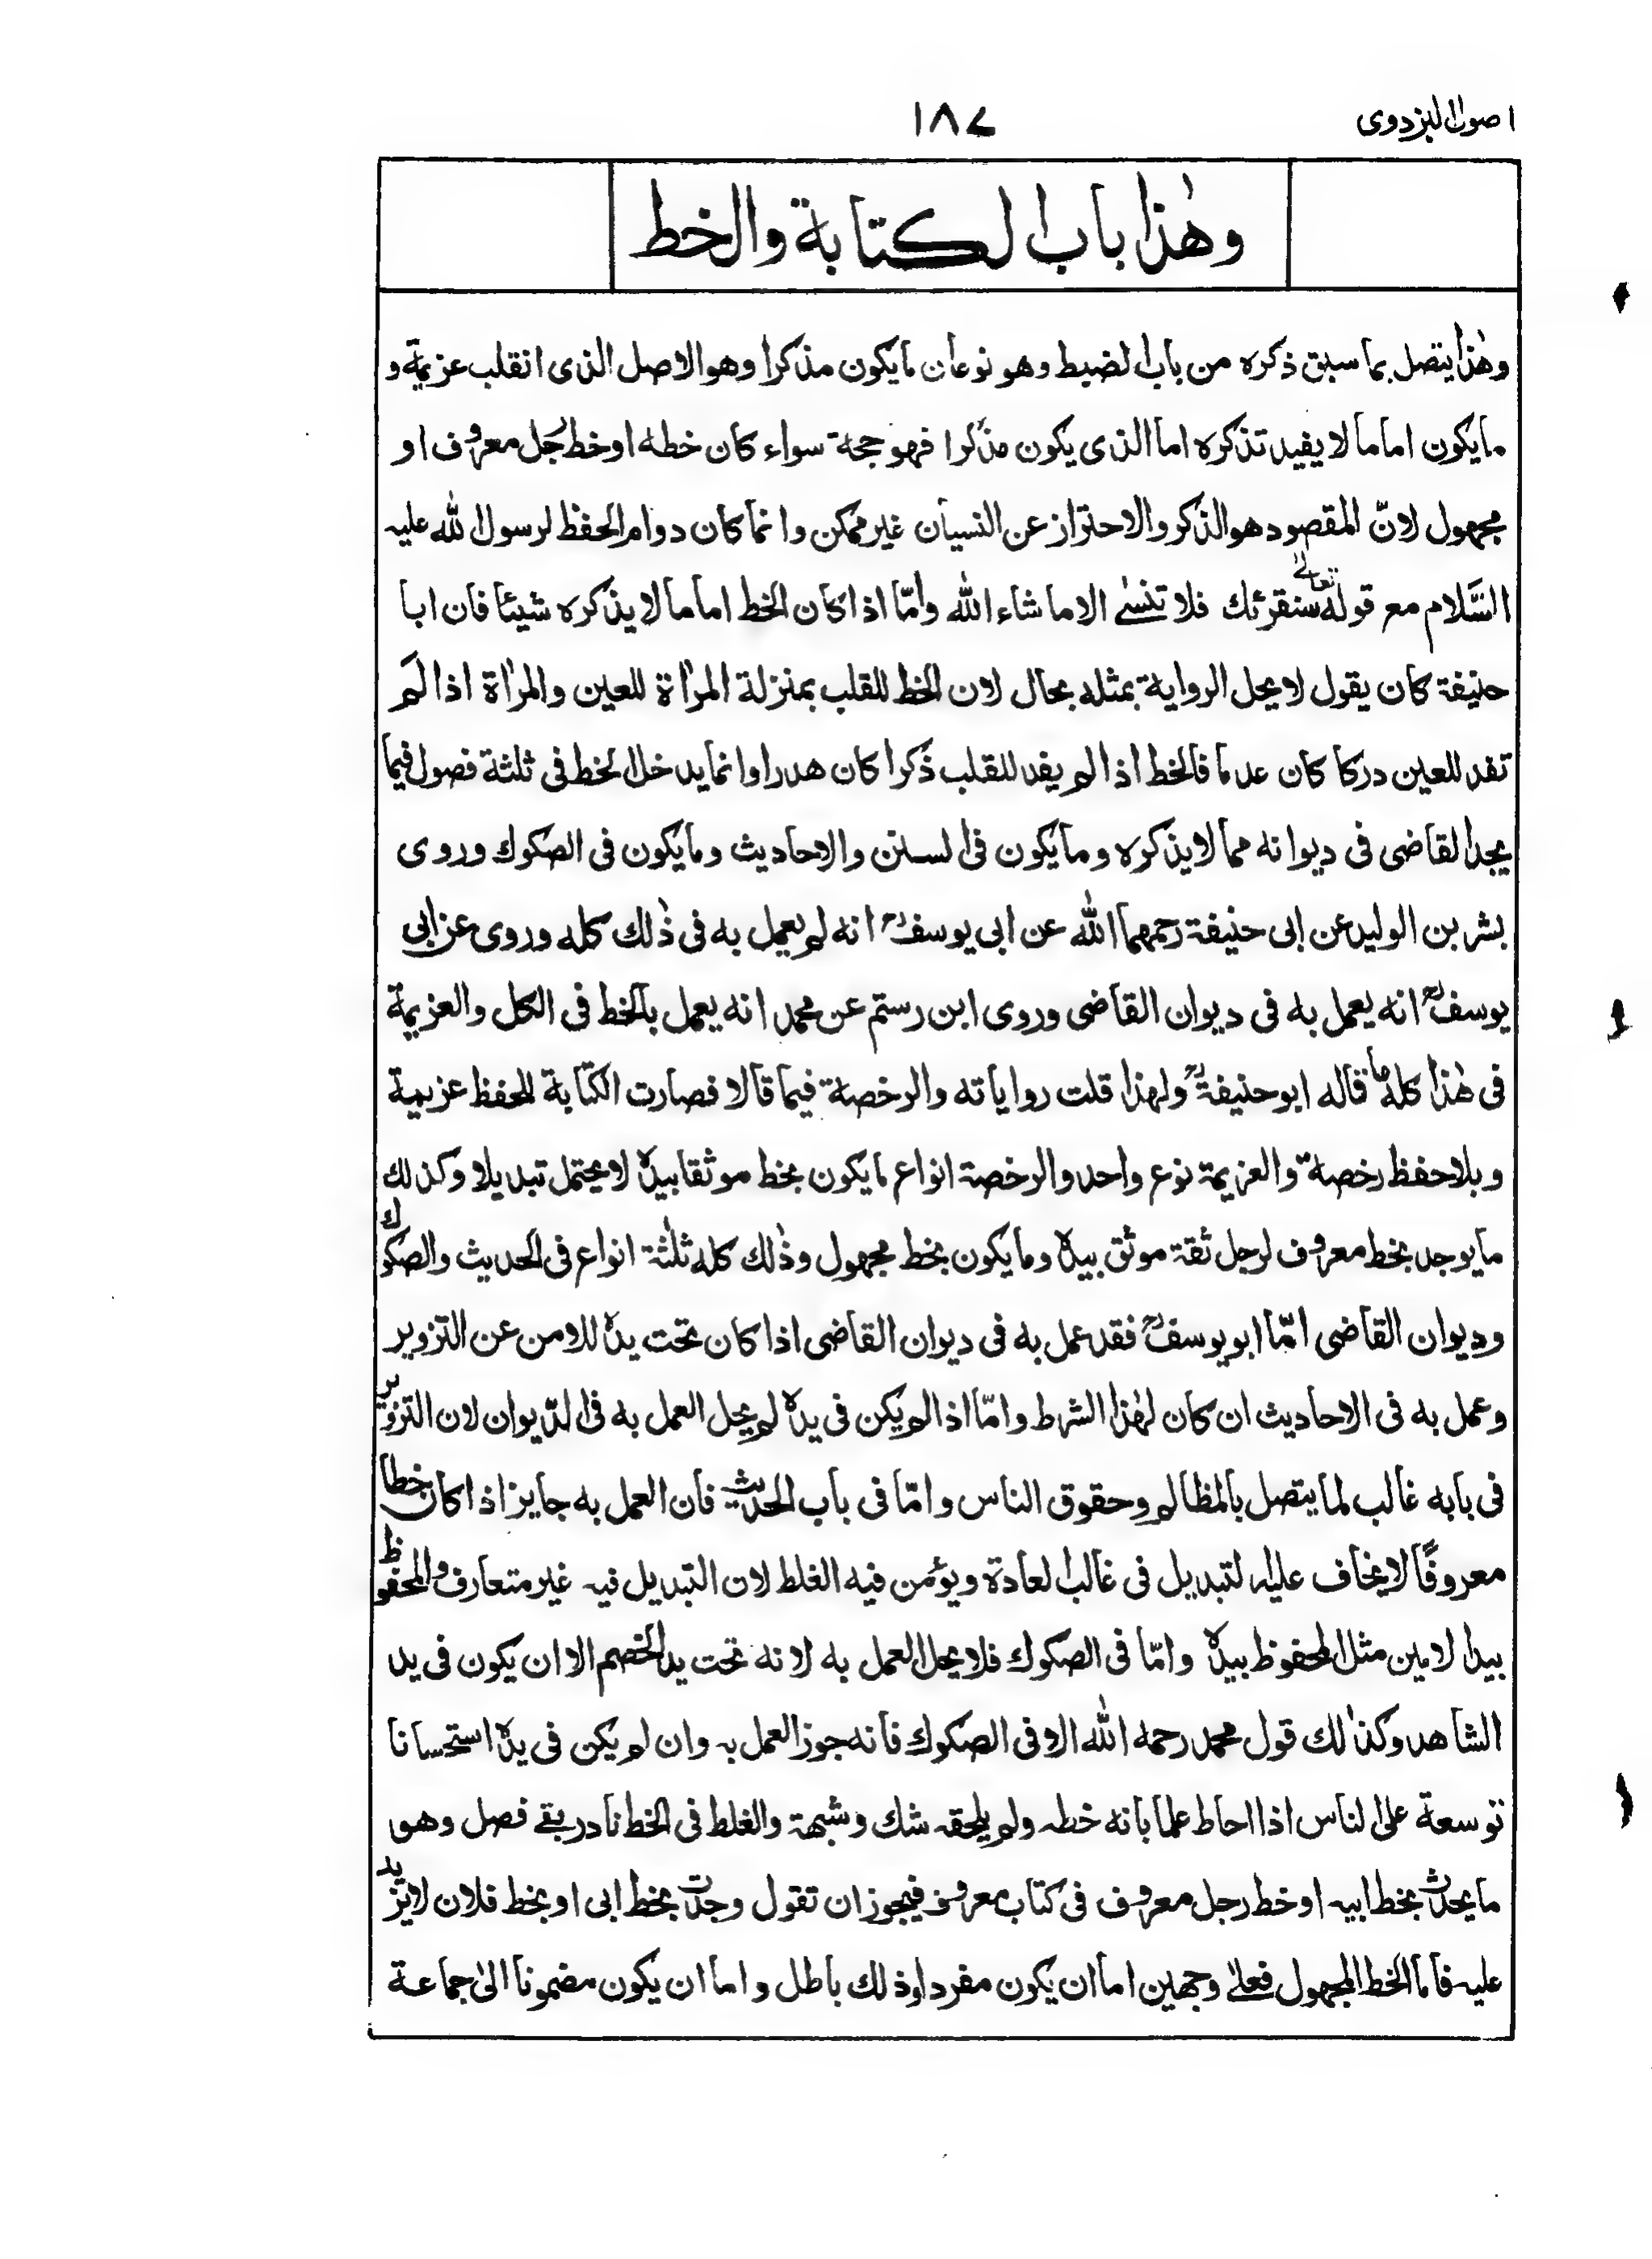 اصول البزدوي
١٨٧
وهٰذا باب الكتابة والخط
وهٰذا يتصل بما سبق ذكره من باب الضبط وهو نوعان ما يكون مذكرا وهو الاصل الذى انقلب عزيمة و
ما يكون اماما لا يفيد تذكره اما الذى يكون مذكرا فهو حجة سواء كان خطه او خط رجل معروف او
مجهول لانّ المقصود هو الذكر والاحتراز عن النسيان غير ممكن وانما كان دوام الحفظ لرسول الله عليه
السَّلام مع قوله تعالىٰ سنقرئك فلا تنسٰى الا ما شاء الله وامّا اذا كان الخط اماما لا يذكره شيئا فان ابا
حنيفة كان يقول لا يحل الرواية بمثله بحال لان الخط للقلب بمنزلة المراٰة للعين والمراٰة اذا لم
تفد للعين دركا كان عدما فالخط اذا لم يفد للقلب ذكرا كان هدرا وانما يدخل الخط فى ثلثة فصول فيما
يجد القاضى فى ديوانه مما لا يذكره وما يكون فى السنن والاحاديث وما يكون فى الصكوك وروى
بشر بن الوليد عن ابى حنيفة رحمهما الله عن ابى يوسف رح انه لم يعمل به فى ذٰلك كله وروى عن ابى
يوسف رح انه يعمل به فى ديوان القاضى وروى ابن رستم عن محمد انه يعمل بالخط فى الكل والعزيمة
فى هٰذا كله ما قاله ابو حنيفة رح ولهذا قلت رواياته والرخصة فيما قالا فصارت الكتابة للحفظ عزيمة
وبلا حفظ رخصة والعزيمة نوع واحد والرخصة انواع ما يكون بخط موثقا بيده لا يحتمل تبديلا وكذلك
ما يوجد بخط معروف لرجل ثقة موثق بيده وما يكون بخط مجهول وذٰلك كله ثلٰثة انواع فى الحديث والصكوك
وديوان القاضى امّا ابو يوسف رح فقد عمل به فى ديوان القاضى اذا كان تحت يده للامن عن التزوير
وعمل به فى الاحاديث ان كان لهٰذا الشرط وامّا اذا لم يكن فى يده لم يحل العمل به فى الدّيوان لان التزوير
فى بابه غالب لما يتصل بالمظالم وحقوق الناس وامّا فى باب الحديث فان العمل به جايز اذا كان خطا
معروفًا لا يخاف عليه التبديل فى غالب العادة ويؤمن فيه الغلط لان التبديل فيه غير متعارف والمحفوظ
بيد الامين مثل المحفوظ بيده وامّا فى الصكوك فلا يحل العمل به لانه تحت يد الخصم الا ان يكون فى يد
الشاهد وكذٰلك قول محمد رحمه الله الا فى الصكوك فانه جوز العمل به وان لم يكن فى يده استحسانا
توسعة على الناس اذا احاط علما بانه خطه ولم يلحقه شك وشبهة والغلط فى الخط نادر بقے فصل وهو
ما يحدث بخط ابيه او خط رجل معروف فى كتاب معروف فيجوز ان تقول وجدت بخط ابى او بخط فلان لا يزيد
عليه فاما الخط المجهول فعلٰے وجهين اما ان يكون مفردا وذلك باطل واما ان يكون مضمونا الىٰ جماعة